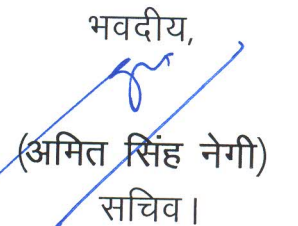 भवदीय,
(अमित सिंह नेगी)
सचिव।